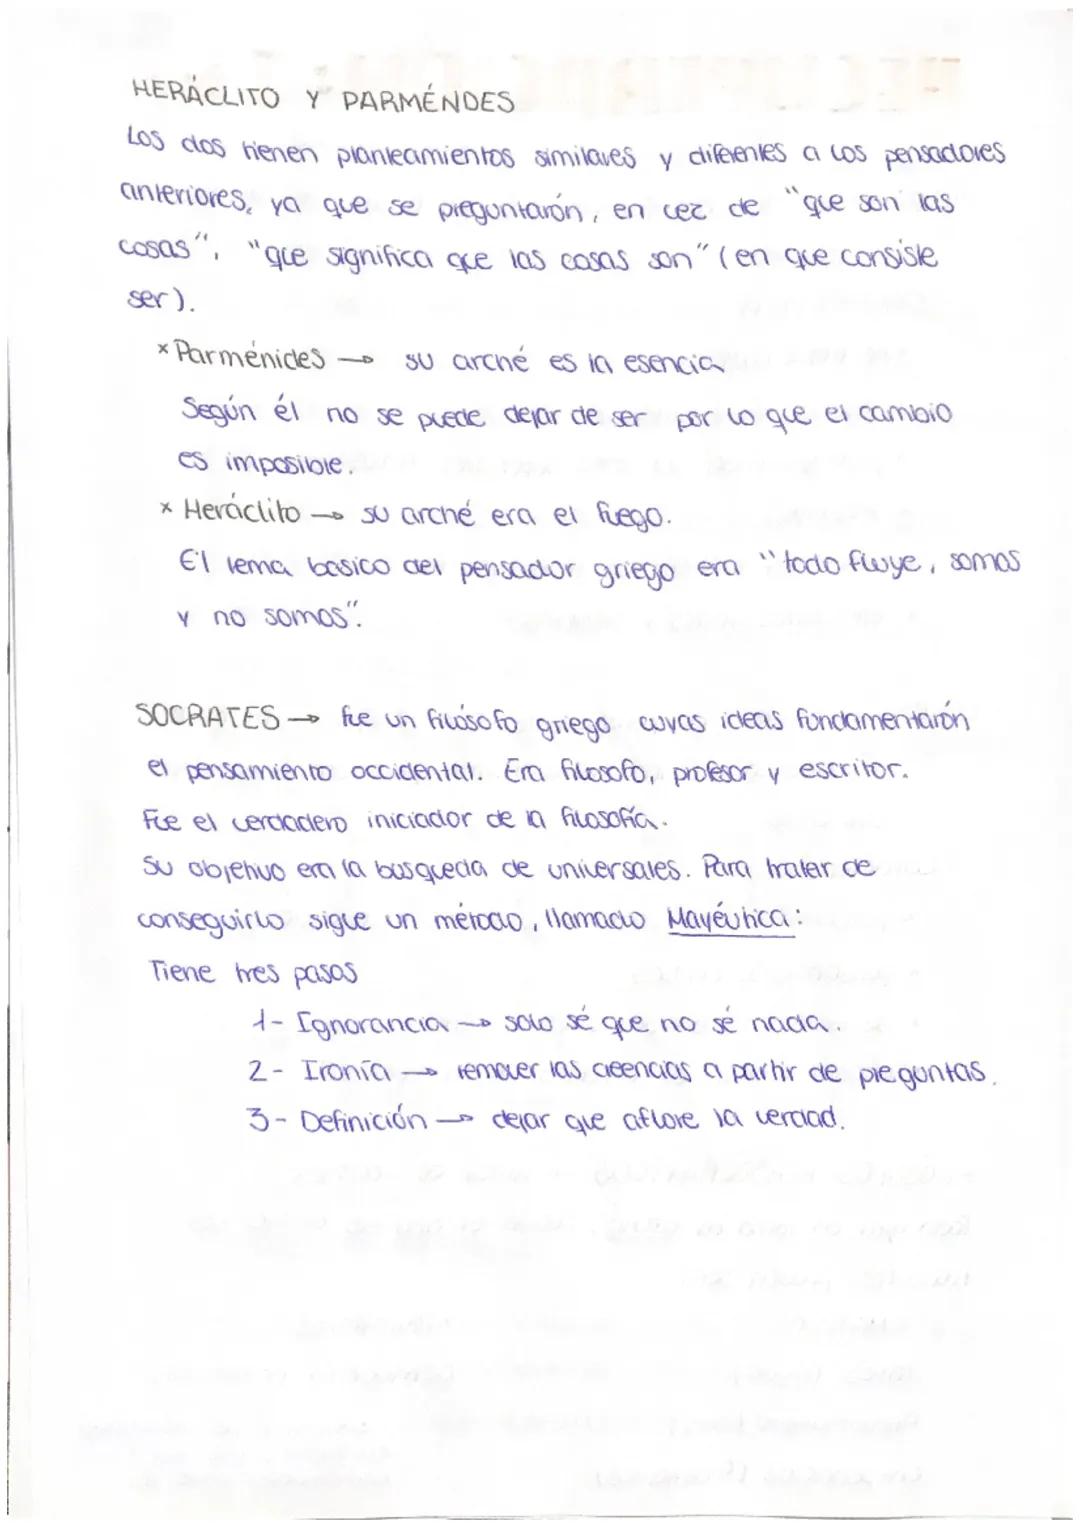 HERÁCLITO Y PARMÉNDES
Los dos tienen planteamientos similares y diferentes a los pensadores
anteriores, ya que se preguntarón, en vez de "que son las
cosas", "que significa que las cosas son" (en que consiste
ser).
× Parménides → su arché es la esencia
Según él no se puede dejar de ser por lo que el cambio
es imposible.
× Heráclito → su arché era el fuego.
El lema basico del pensador griego era "todo fluye, somos
y no somos".
SOCRATES → fue un filósofo griego cuyas ideas fundamentarón
el pensamiento occidental. Era filosofo, profesor y escritor.
Fue el verdadero iniciador de la filosofía.
Su objetivo era la busqueda de universales. Para tratar de
conseguirlo sigue un método, llamado Mayéutica:
Tiene tres pasos
1- Ignorancia → solo sé que no sé nada.
2- Ironía → remover las creencias a partir de preguntas.
3- Definición → dejar que aflore la verdad.